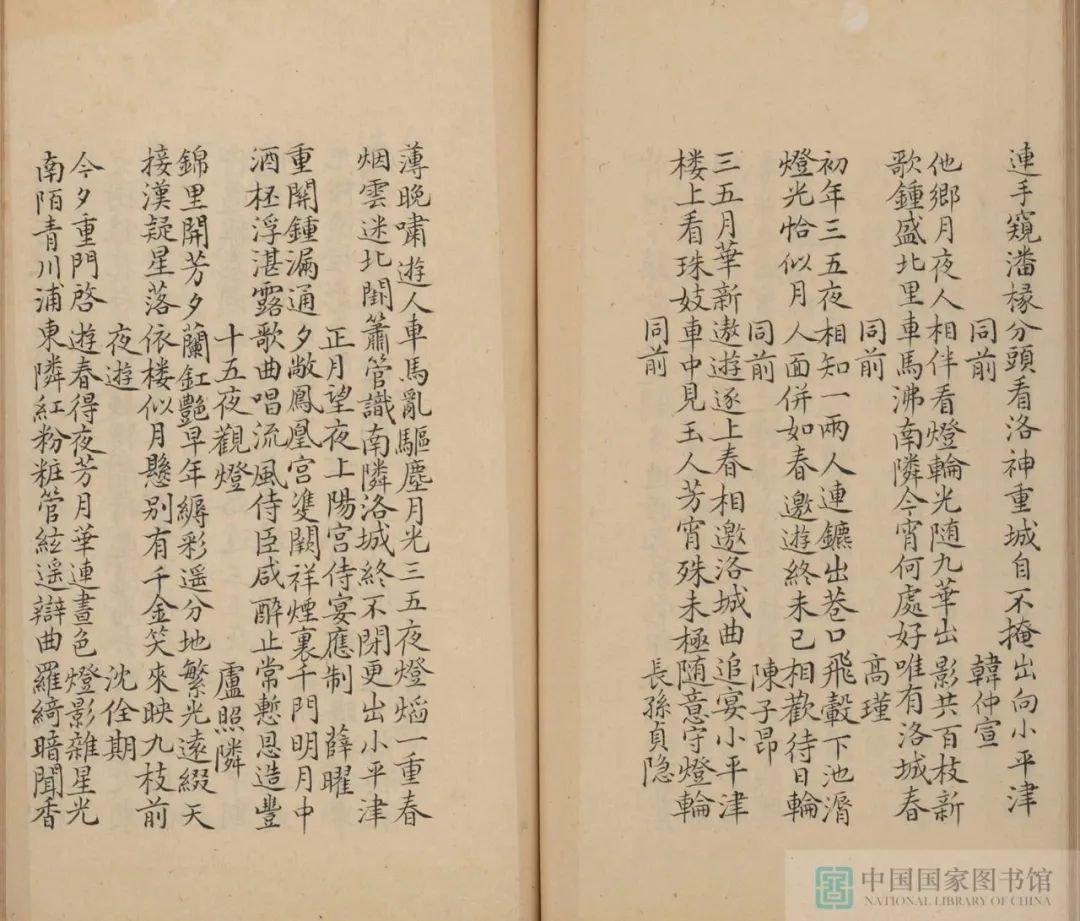 連手窺潘掾分頭看洛神重城自不掩出向小平津
同前 韓仲宣
他鄉月夜人相伴看燈輪光随九華出影共百枝新
歌鍾盛北里車馬沸南隣今宵何處好唯有洛城春
同前 高瑾
初年三五夜相知一兩人連鑣出巷口飛轂下池漘
燈光恰似月人面併如春邀遊終未已相歡待日輪
同前 陳子昂
三五月華新遨遊逐上春相邀洛城曲追宴小平津
楼上看珠妓車中見玉人芳宵殊未極随意守燈輪
同前 長孫貞隐
薄晚嘯遊人車馬亂驅塵月光三五夜燈熖一重春
烟雲迷北閈簫管識南隣洛城終不閉更出小平津
正月望夜上陽宮侍宴應制 薛曜
重開鍾漏通夕敞鳳凰宮䨇闕祥煙裏千門明月中
酒柸浮湛露歌曲唱流風侍臣咸醉止常慙恩造豐
十五夜觀燈 盧照隣
錦里開芳夕蘭釭艷早年縟彩遥分地繁光遠綴天
接漢疑星落依楼似月懸别有千金笑來映九枝前
夜遊 沈佺期
今夕重門啓遊春得夜芳月華連晝色燈影雜星光
南陌青川浦東隣紅粉粧管絃遥辯曲羅綺暗聞香
中国国家图书馆
NATIONAL LIBRARY OF CHINA